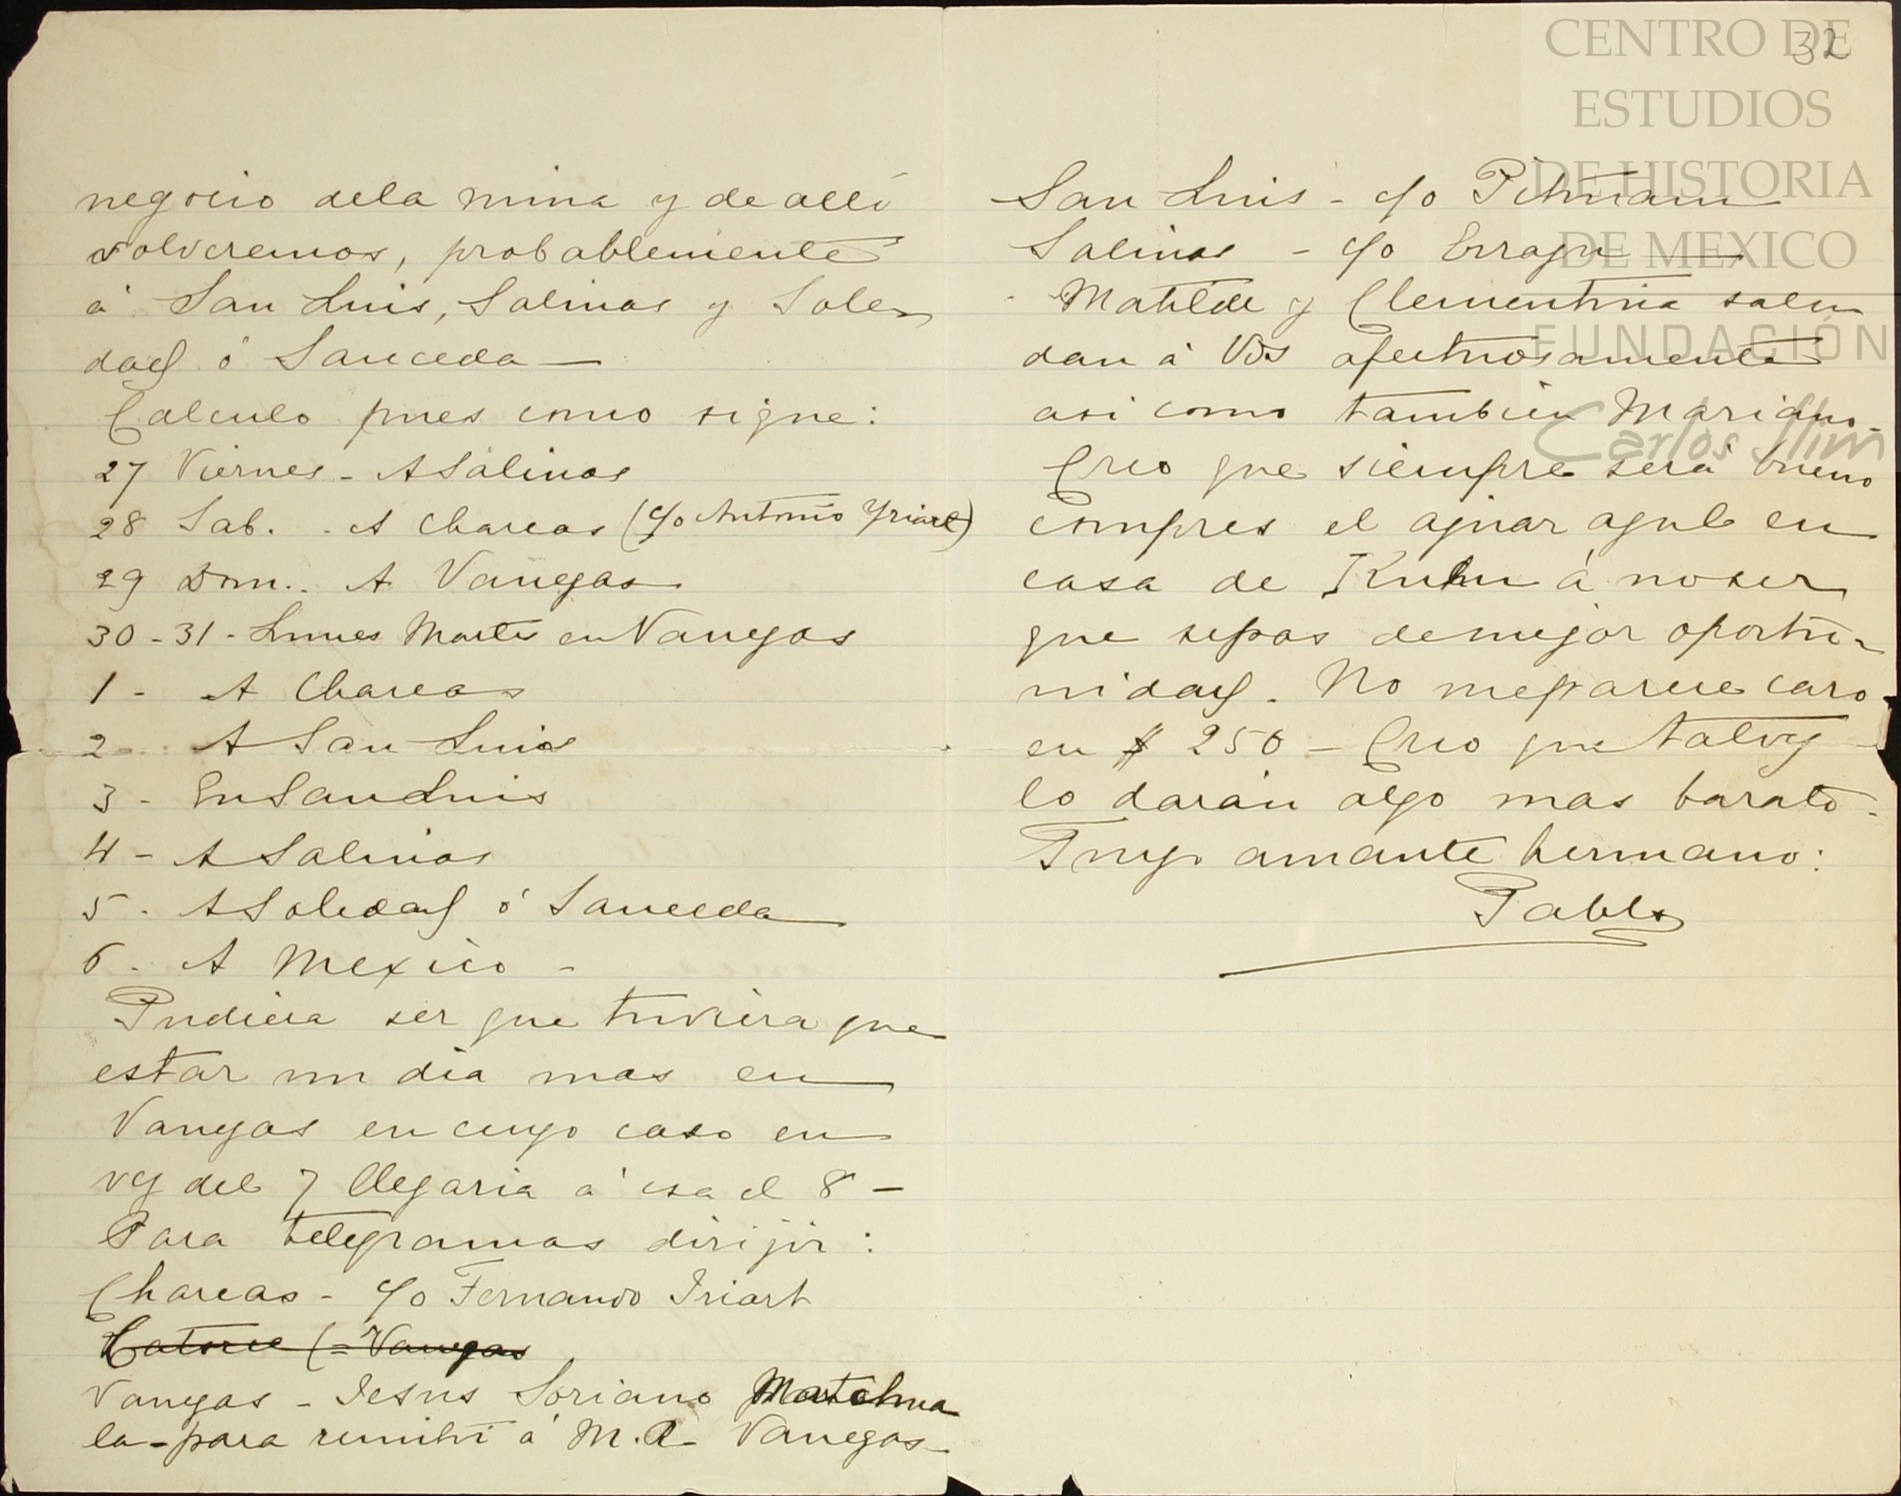 negocio dela mina y de allí
volveremos, probablemente
á San Luis, Salinas y Sole-
dad ó Sauceda —
Calculo pues como sigue:
27 Viernes - A Salinas
28 Sab. - A Charcas (c/o Antonio Yriart)
29 Dom. . A Vanegas
30 - 31 - Lunes Martes en Vanegas
1 - A Charcas
2 - A San Luis
3 - En San Luis
4 - A Salinas
5 - A Soledad ó Sauceda
6 - A Mexico -
Pudiera ser que tuviera que
estar un dia mas en
Vanegas en cuyo caso en
vez del 7 llegaria á esa el 8 —
Para telegramas dirijir :
Charcas - c/o Fernando Iriart
Catorce (= Vanegas
Vanegas - Jesus Soriano Matehua
la - para remitir á M. A. Vanegas -
32
San Luis - c/o Pitman
Salinas - c/o
Matilde y Clementina salu
dan á Vds afectuosamente
asi como tambien Mariano.
Creo que siempre será bueno
compres el ajuar azul en
casa de Kuhn á no ser
que sepas de mejor oportu-
nidad. No me parece caro
en $ 250 - Creo que talvez
lo darán algo mas barato.
Tuyo amante hermano:
Pablo
CENTRO DE
ESTUDIOS
DE HISTORIA
DE MEXICO
FUNDACIÓN
Carlos Slim